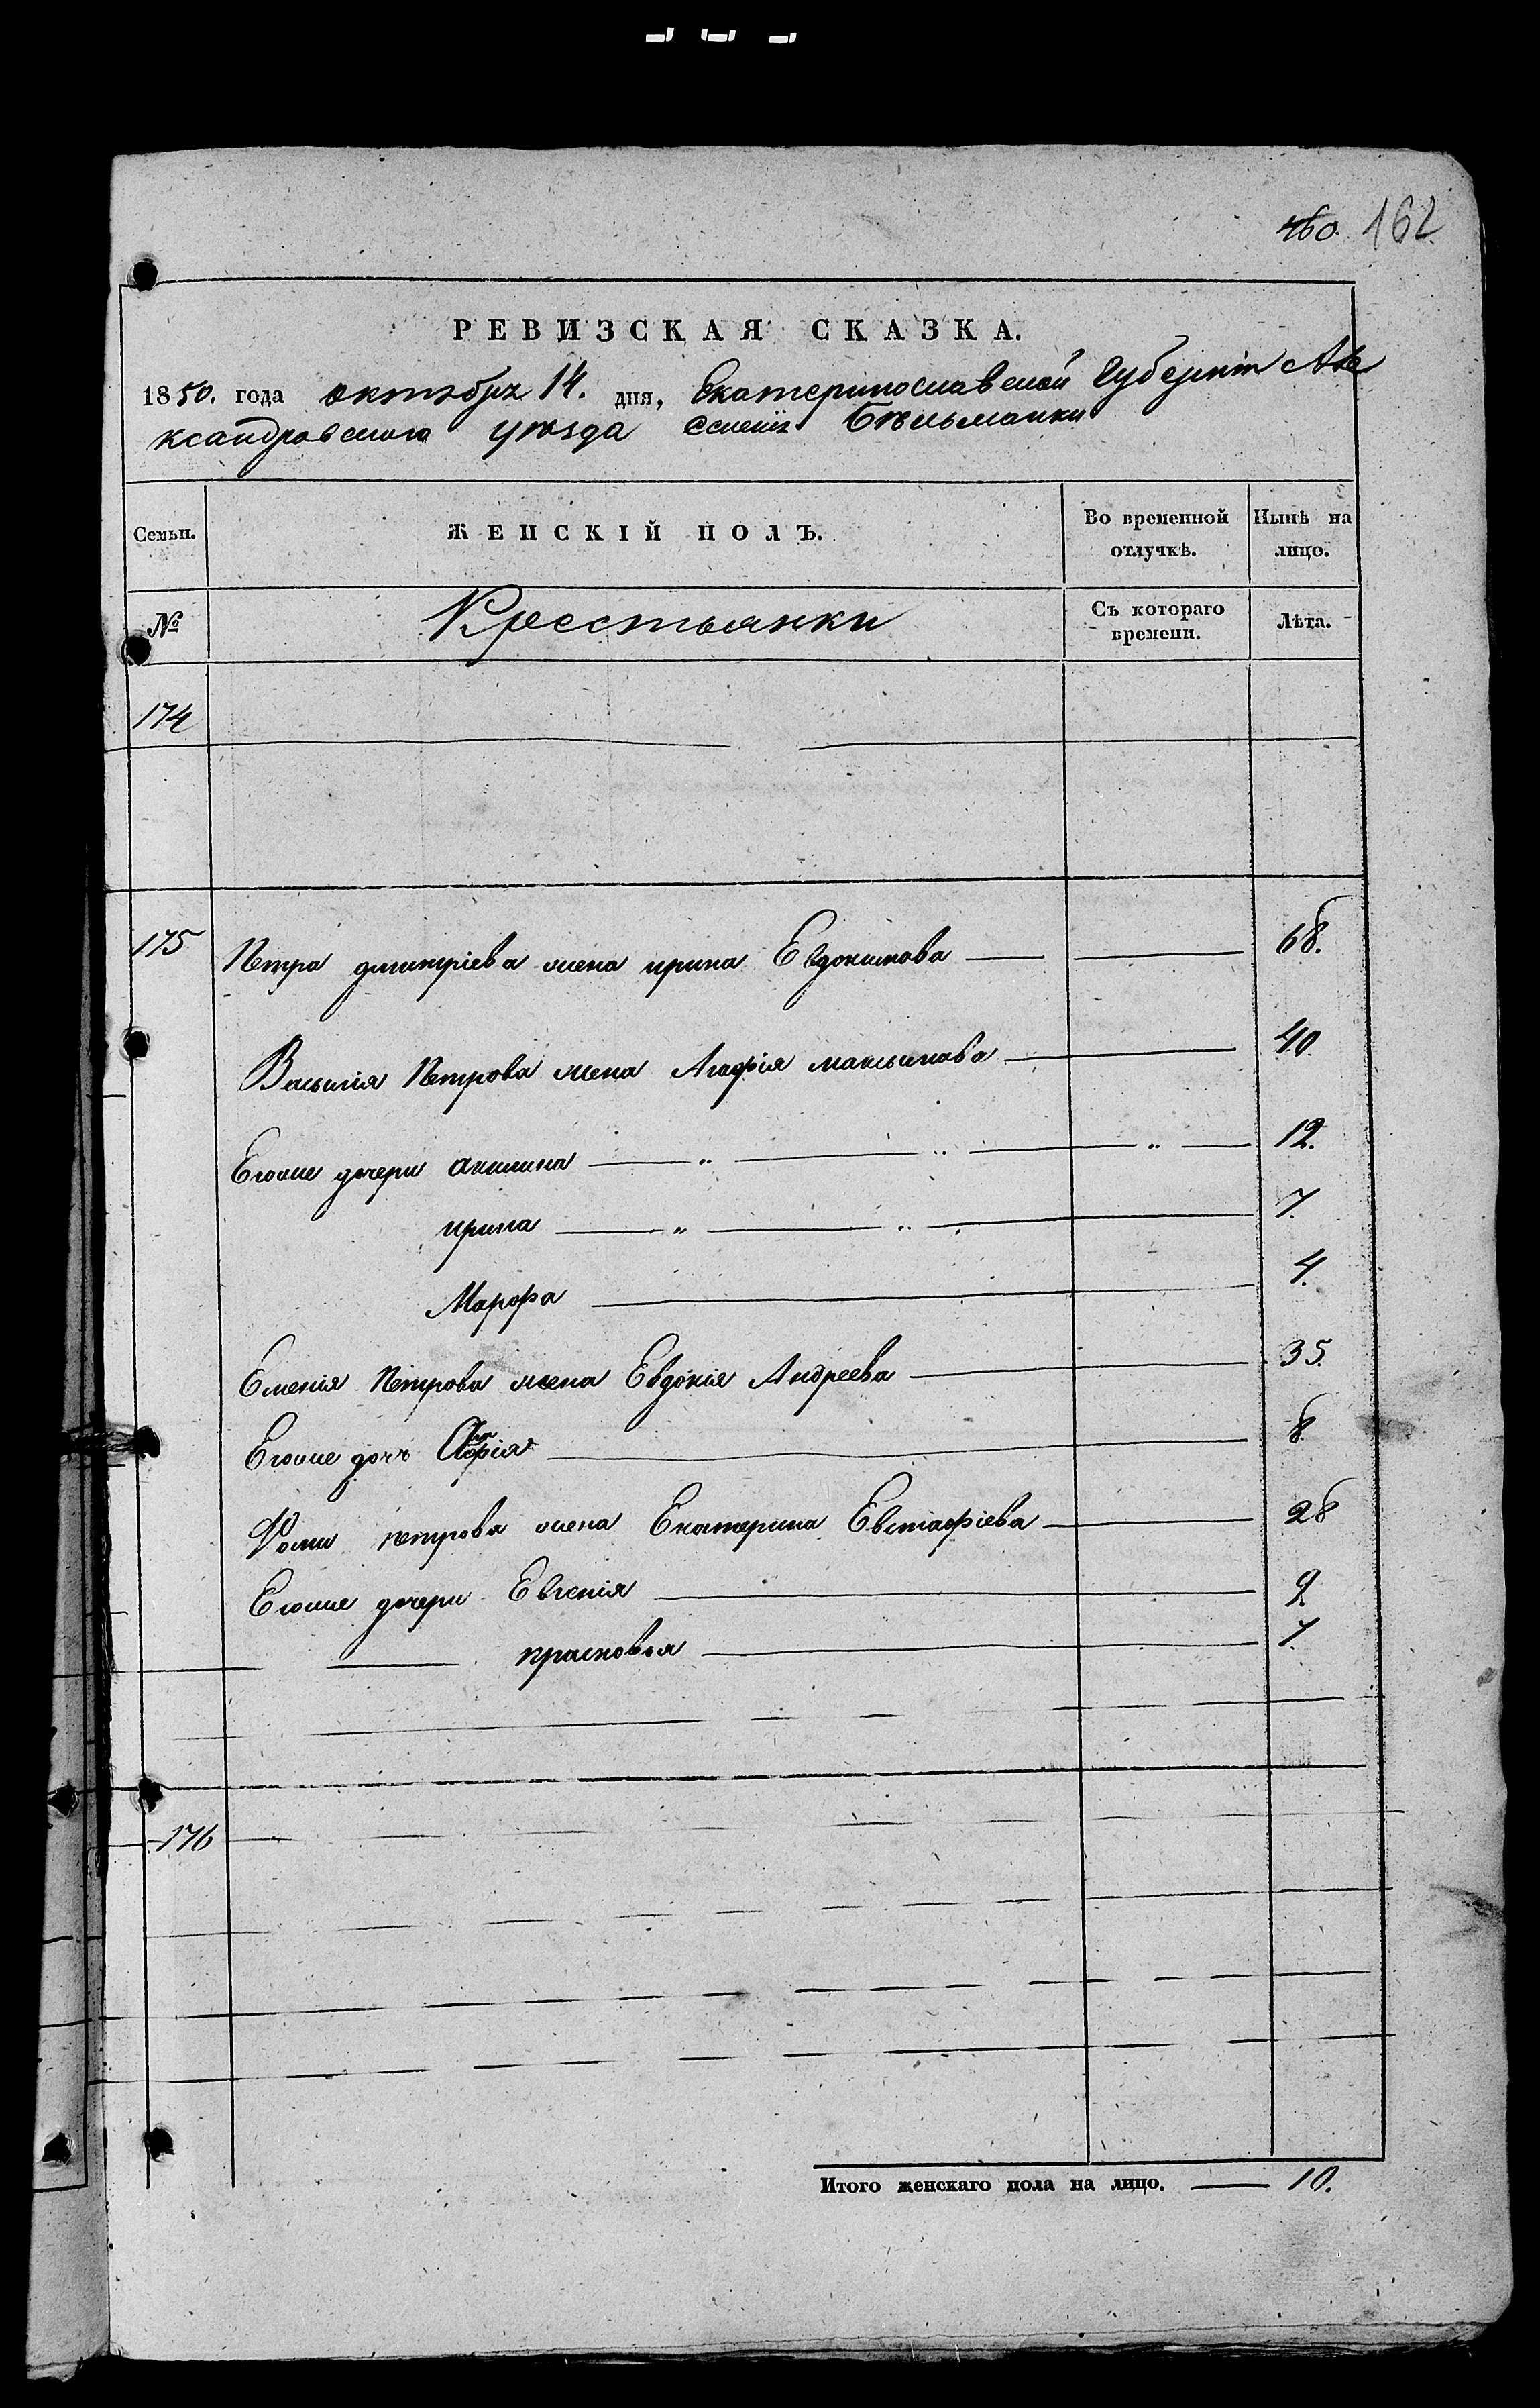 160. 162
РЕВИЗСКАЯ СКАЗКА.
1850. года октября 14. дня, Екатеринославской Губерніи Але
ксандровского уѣзда Селенія Бѣльманки
Семьи. ЖЕНСКІЙ ПОЛЪ. Во временной отлучкѣ. Нынѣ на лицо.
№ Крестьянки Съ котораго времени. Лѣта.
174
175 Петра дмитріева жена ирина Евдокимова 68.
Василія Петрова жена Агафія максимова 40.
Егоже дочери акилина 12.
ирина 7.
Марфа 4.
Семенія Петрова жена Евдокія Андреева 35.
Егоже дочь 8
Фомы петрова жена Екатерина Евстафіева 28
Егоже дочери Евгенія 9.
прасковья 7.
176
Итого женскаго пола на лицо. 10.